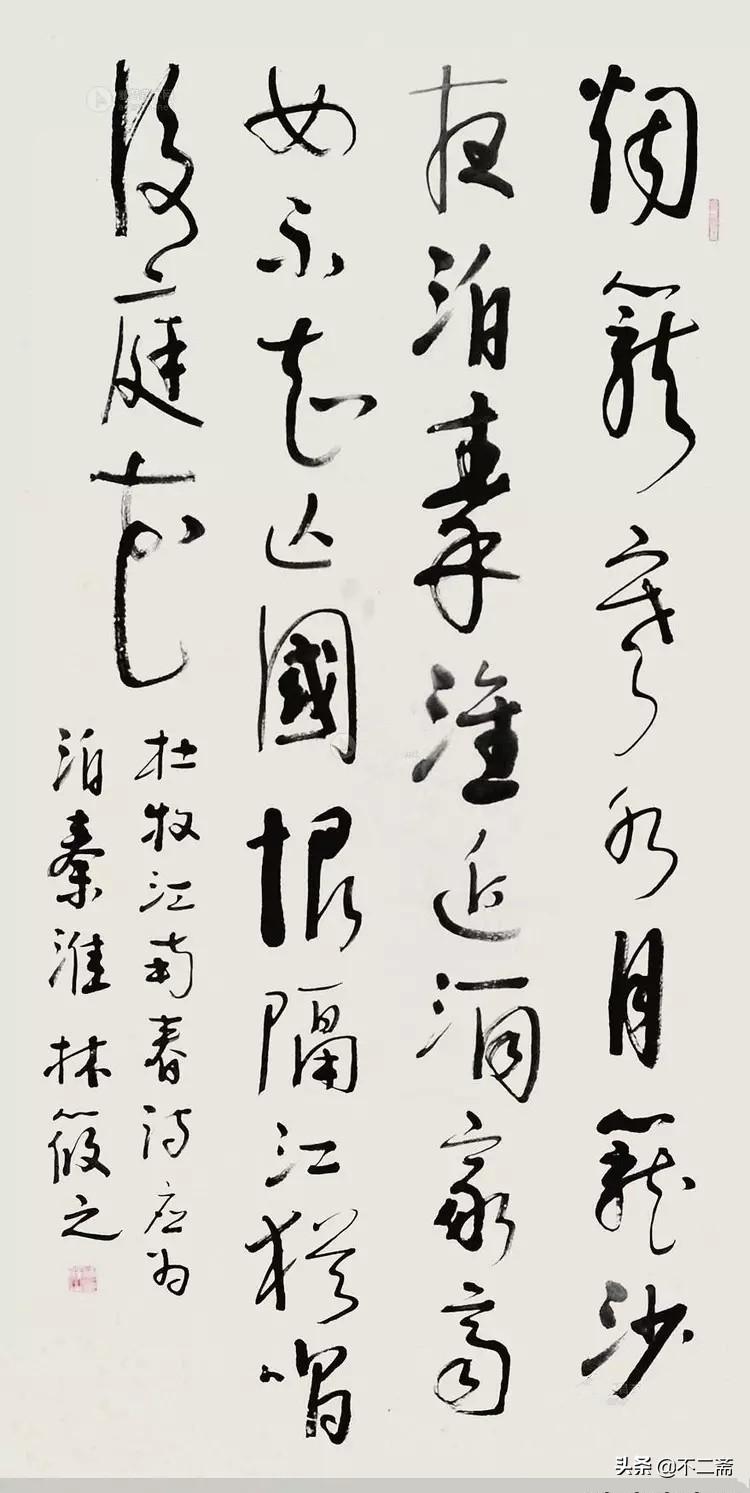 烟籠寒水月籠沙
夜泊秦淮近酒家商
女不知亡國恨隔江猶唱
後庭花
杜牧江南春诗应为
泊秦淮 林筱之
头条 @不二斋